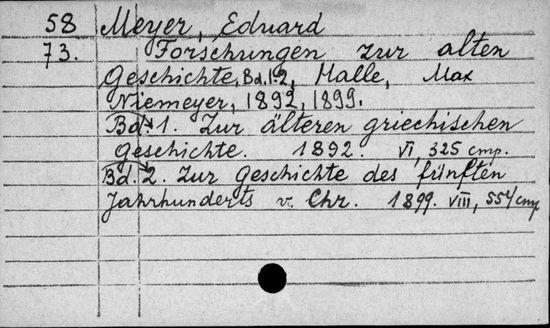 58 Meyer, Eduard
73. Forschungen zur alten
Geschichte, Bd. 1.2, Halle, Max
Niemeyer, 1892, 1899.
Bd. 1. Zur älteren griechischen
Geschichte. 1892. VI, 325 стр.
Bd. 2. Zur Geschichte des fünften
Jahrhunderts v. Chr. 1899. VIII, 554 стр.